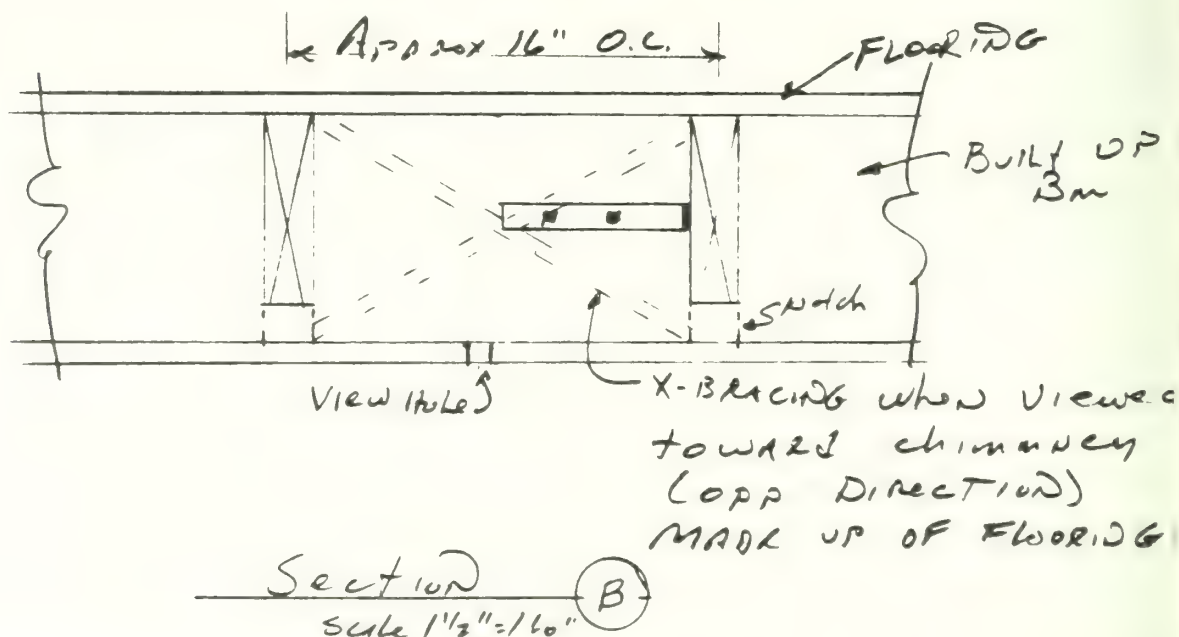 Approx 16" O.C.
FLOORING
Built UP
Bm
Notch
View Hole
X-BRACING when viewed
toward chimney
(OPP DIRECTION)
MADE UP OF FLOORING
Section B
Scale 1 1/2"=1'0"